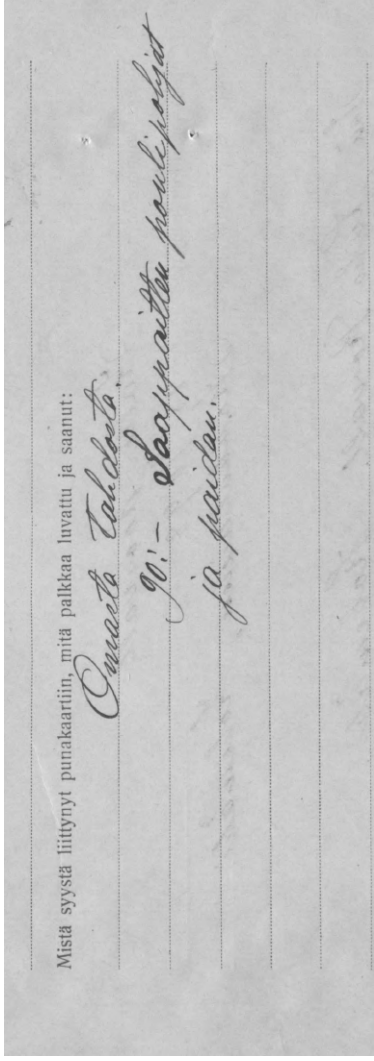 Mistä syystä liittynyt punakaartiin, mitä palkkaa luvattu ja saanut:
Omasta tahdosta.
90:- Saappaitten poulipohjat
ja paidan.